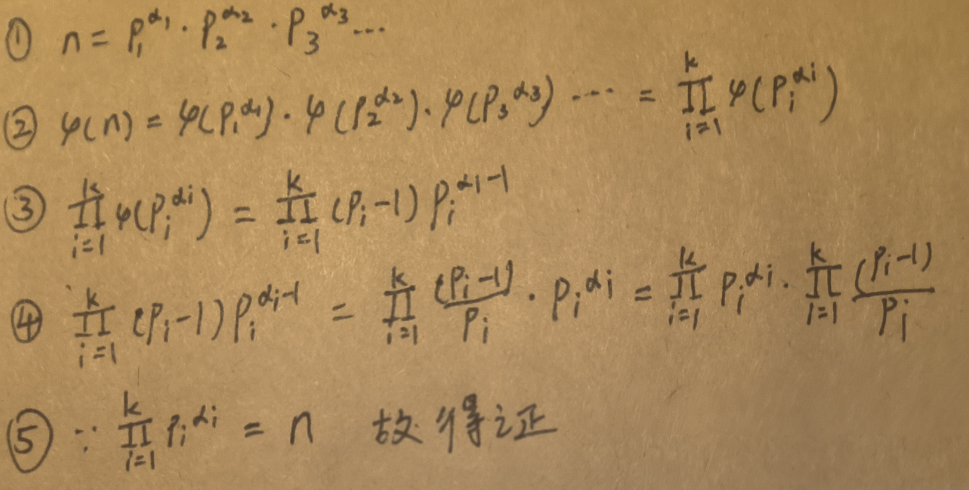 ① n = p₁^α₁ · p₂^α₂ · p₃^α₃ ···
② φ(n) = φ(p₁^α₁) · φ(p₂^α₂) · φ(p₃^α₃) ···· = ∏_{i=1}^{k} φ(p_i^αi)
③ ∏_{i=1}^{k} φ(p_i^αi) = ∏_{i=1}^{k} (p_i-1) p_i^{αi-1}
④ ∏_{i=1}^{k} (p_i-1) p_i^{αi-1} = ∏_{i=1}^{k} (p_i-1)/p_i · p_i^αi = ∏_{i=1}^{k} p_i^αi · ∏_{i=1}^{k} (p_i-1)/p_i
⑤ ∵ ∏_{i=1}^{k} p_i^αi = n 故得证